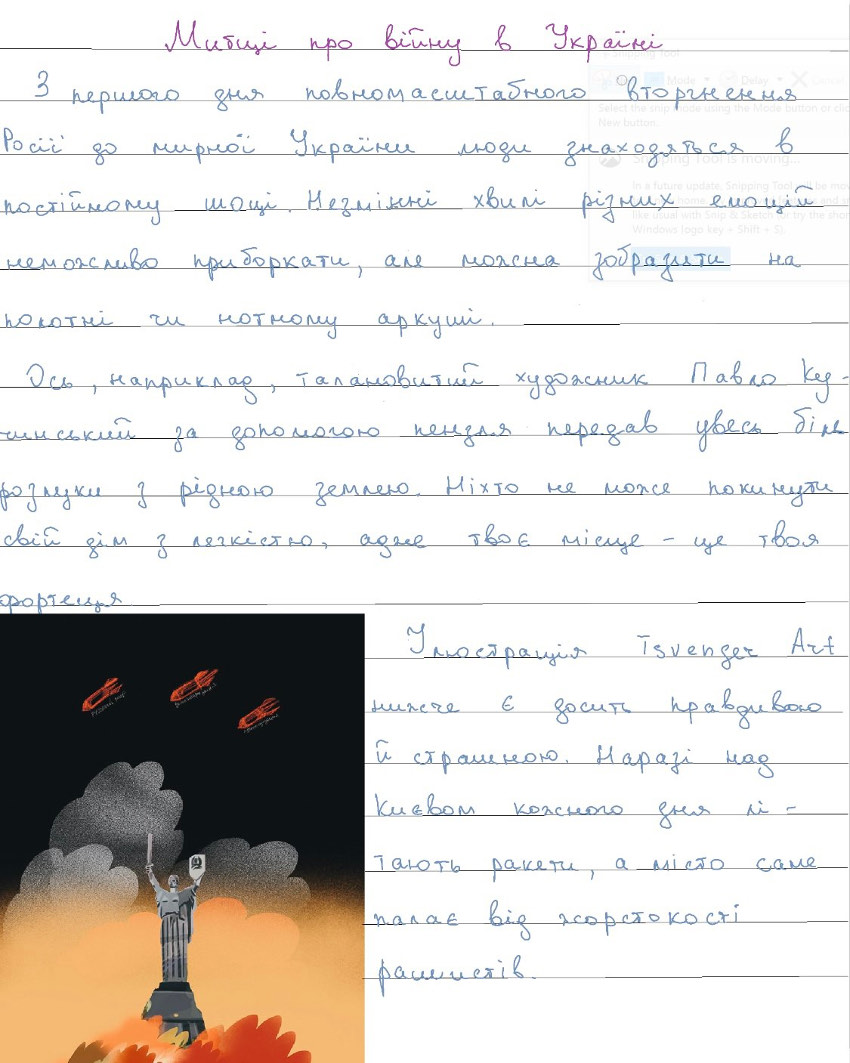 Митці про війну в Україні
З першого дня повномасштабного вторгнення
Росії до мирної України люди знаходяться в
постійному шоці. Незмінні хвилі різних емоцій
неможливо приборкати, але можна зобразити на
полотні чи нотному аркуші.
Ось, наприклад, талановитий художник Павло Куд-
чинський за допомогою пензля передав увесь біль
розлуки з рідною землею. Ніхто не може покинути
свій дім з легкістю, адже твоє місце - це твоя
фортеця
Ілюстрація Tsvenger Art
нижче є досить правдивою
й страшною. Наразі над
Києвом кожного дня лі-
тають ракети, а місто саме
палає від жорстокості
рашистів.
Snipping Tool
Mode Delay Cancel
Select the snip mode using the Mode button or clic
New button.
Snipping Tool is moving...
In a future update, Snipping Tool will be mov
home.
like usual with Snip & Sketch (or try the shor
Windows logo key + Shift + S).